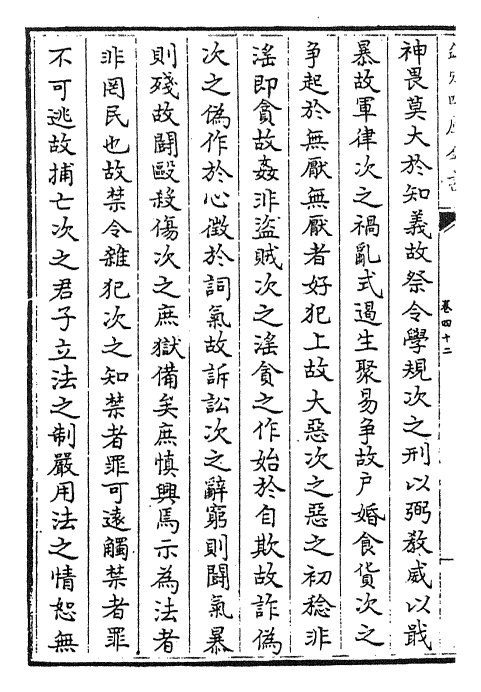 欽定四庫全書
卷四十二
神畏莫大於知義故祭令學規次之刑以弼教威以戢
暴故軍律次之禍亂式遏生聚易争故户婚食貨次之
争起於無厭無厭者好犯上故大惡次之惡之初稔非
滛即貪故姦非盜賊次之滛貪之作始於自欺故詐偽
次之偽作於心徴於詞氣故訴訟次之辭窮則鬪氣暴
則殘故鬪毆殺傷次之庶獄備矣庶慎興焉示為法者
非罔民也故禁令雜犯次之知禁者罪可逺觸禁者罪
不可逃故捕亡次之君子立法之制嚴用法之情恕無